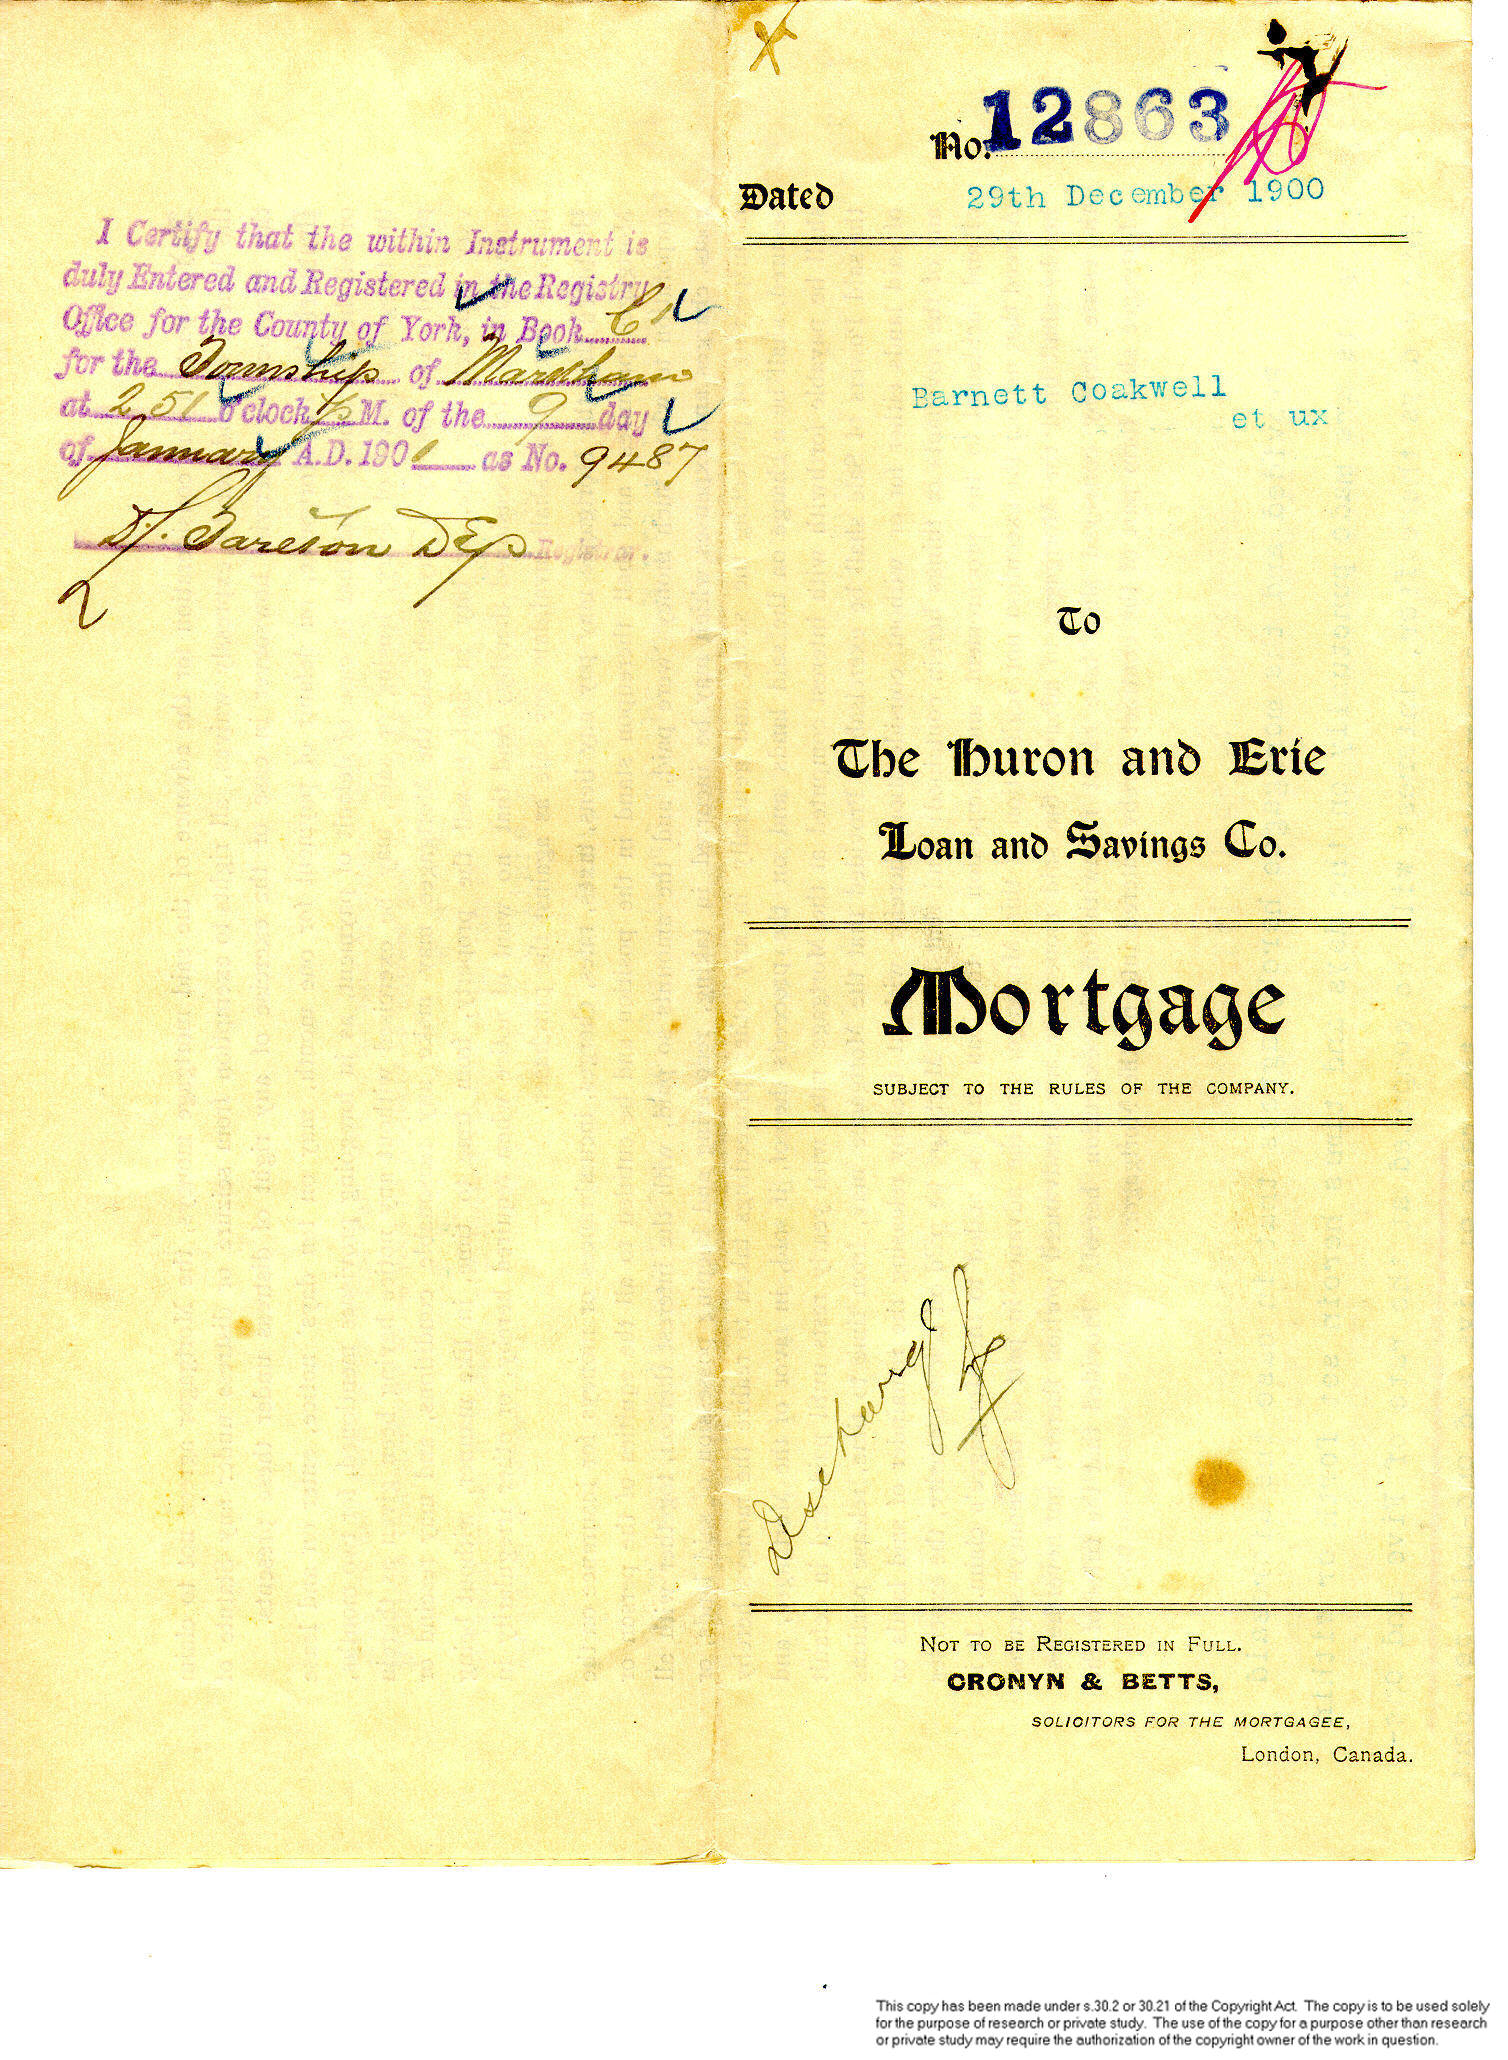 I Certify that the within Instrument is
duly Entered and Registered in the Registry
Office for the County of York, in Book C
for the Township of Markham
at 2 51 o'clock P M. of the 9 day
of January A.D. 1901 as No. 9487
Dep Registrar.
2
No. 12863
Dated 29th December 1900
Barnett Coakwell
et ux
To
The Huron and Erie
Loan and Savings Co.
Mortgage
SUBJECT TO THE RULES OF THE COMPANY.
NOT TO BE REGISTERED IN FULL.
CRONYN & BETTS,
SOLICITORS FOR THE MORTGAGEE,
London, Canada.
This copy has been made under s.30.2 or 30.21 of the Copyright Act. The copy is to be used solely
for the purpose of research or private study. The use of the copy for a purpose other than research
or private study may require the authorization of the copyright owner of the work in question.